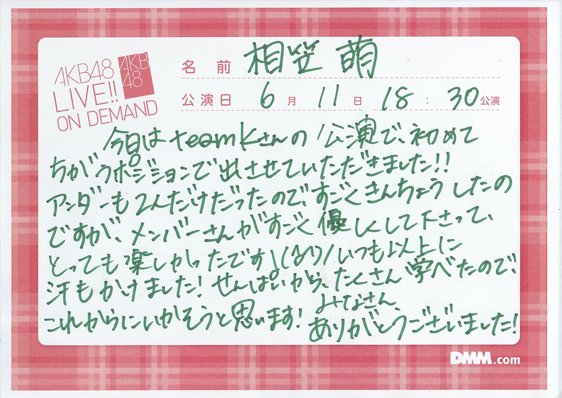 AKB48
LIVE!!
ON DEMAND
AKB
48
名前 相笠 萌
公演日 6月11日 18:30公演
今日はteamKさんの公演で、初めて
ちがうポジションで出させていただきました!!
アンダーも2人だけだったので、すごくきんちょうしたの
ですが、メンバーさんがすごく優しくして下さって、
とっても楽しかったです!(
いつも以上に
汗もかけました! せんぱいから、たくさん学べたので、
これからにいかそうと思います! みなさん
ありがとうございました!
DMM.com